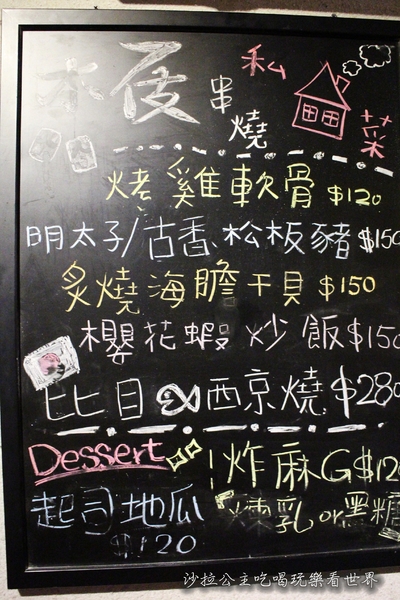 本夜
串燒
私菜
烤雞軟骨 $120
明太子/古香松板豬 $150
炙燒海膽干貝 $150
櫻花蝦炒飯 $150
比目 西京燒 $280
Dessert
炸麻G $120
起司地瓜
$120
煉乳 or 黑糖
沙拉公主吃喝玩樂看世界